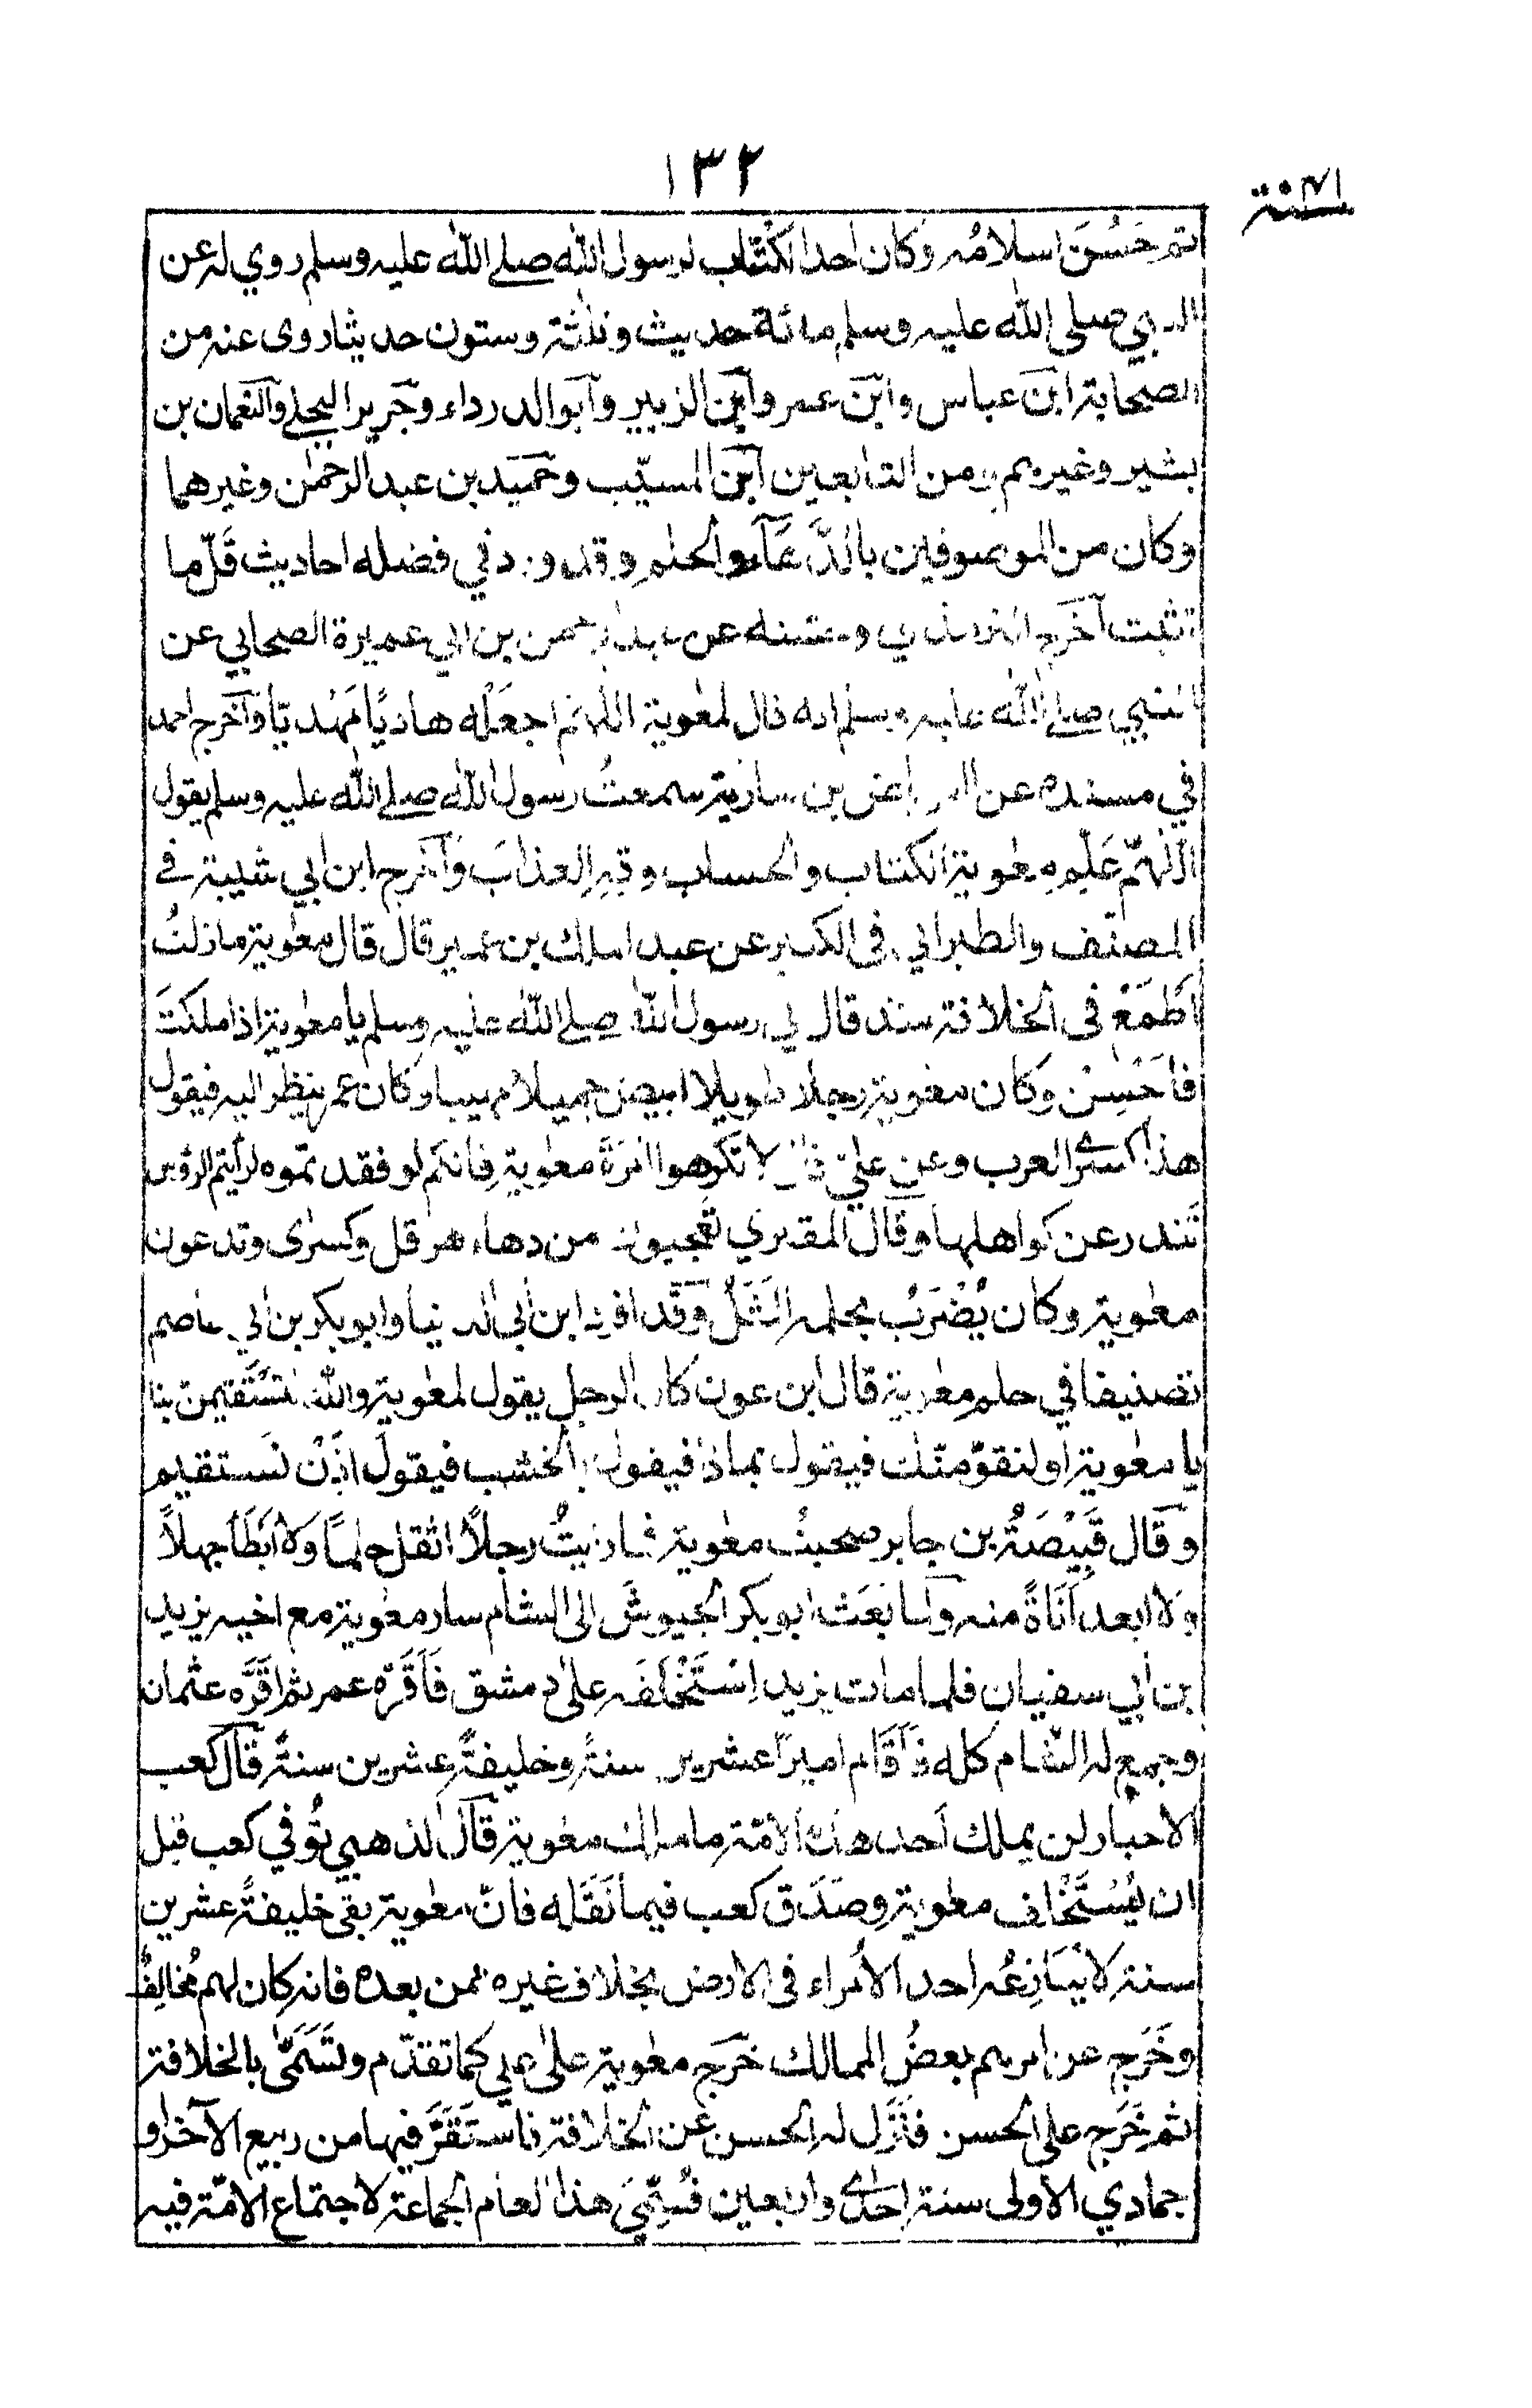 ١٣٢
سنة ٤١
ثم حَسُنَ اسلامُه وكان احد الكُتّاب لرسول الله صلى الله عليه وسلم روي له عن
النبي صلى الله عليه وسلم مائة حديث وثلثة وستون حديثا روى عنه من
الصحابة ابن عباس وابن عمر وابن الزبير وابو الدرداء وجرير البجلي والنعمان بن
بشير وغيرهم ومن التابعين ابن المسيّب وحميد بن عبد الرحمٰن وغيرهما
وكان من الموصوفين بالدَّهَآء والحلم وقد ورد في فضله احاديث قَلّ ما
تثبت اخرج الترمذي وحسنه عن عبد الرحمن بن ابي عميرة الصحابي عن
النبي صلى الله عليه وسلم انه قال لمعٰوية اللّهم اجعَلْه هاديًا مَهْديّا واخرج احمد
في مسنده عن العرباض بن سارية سمعتُ رسول الله صلى الله عليه وسلم يقول
اللّهمّ عَلِّم معٰوية الكتاب والحساب وقِهِ العذابَ واخرج ابن ابي شيبة في
المصنّف والطبراني في الكبير عن عبد الملك بن عمير قال قال معٰوية ما زلتُ
اَطْمَعُ في الخلافة منذ قال لي رسول الله صلى الله عليه وسلم يا معٰوية اذا ملكتَ
فاَحْسِنْ وكان معٰوية رجلا طويلا ابيض جميلا مهيبا وكان عمر ينظر اليه فيقول
هذا كسرى العرب وعن عليّ قال لا تَكرهوا امْرَةَ معٰوية فانكم لو فقدتموه لرأيتم الرؤس
تَندر عن كواهلها وقال المقبري تعجبون من دهاء هرقل وكسرٰى وتدعون
معٰوية وكان يُضْرَبُ بحلمه المَثَلُ وقد افرد ابن ابي الدنيا وابو بكر بن ابي عاصم
تصنيفا في حلم معٰوية قال ابن عون كان الرجل يقول لمعٰوية والله لتَسْتَقيمن بنا
يا معٰوية او لنقوّمنّك فيقول بماذا فيقول بالخشب فيقول اذَنْ نَستقيم
وقال قَبِيْصَةُ بن جابر صحبتُ معٰوية فما رأيتُ رجلًا اثقل حِلمًا ولا اَبْطَأ جهلاً
ولا ابعد اَنَاةً منه ولما بَعَثَ ابو بكر الجيوشَ الى الشام سار معٰوية مع اخيه يزيد
بن ابي سفيان فلما مات يزيد اِسْتَخْلَفَه علىٰ دمشق فَاَقَرَّه عمر ثم اَقَرَّه عثمان
وجمع له الشام كله فَاَقَام اميرًا عشرين سنةً وخليفةً عشرين سنةً قال كعب
الاحبار لن يملك اَحد هذه الامّة ما ملك معٰوية قال الذهبي تُوُفي كعب قبل
ان يُسْتَخْلف معٰوية وصَدَق كعب فيما نَقَله فانّ معٰوية بقى خليفةً عشرين
سنة لا يُنَازِعُه احد الأمراء في الارض بخلاف غيره ممن بعده فانه كان لهم مُخالِفٌ
وخَرَج عن امرهم بعضُ الممالك خَرَج معٰوية علىٰ علي كما تقدّم وتَسَمّىٰ بالخلافة
ثم خَرَج على الحسن فنَزَل له الحسن عَن الخلافة فاستَقَرَّ فيها من ربيع الآخر او
جمادي الاولى سنة اِحدٰى واربعين فسُمِّيَ هذا العام الجماعة لاجتماع الامّة فيه